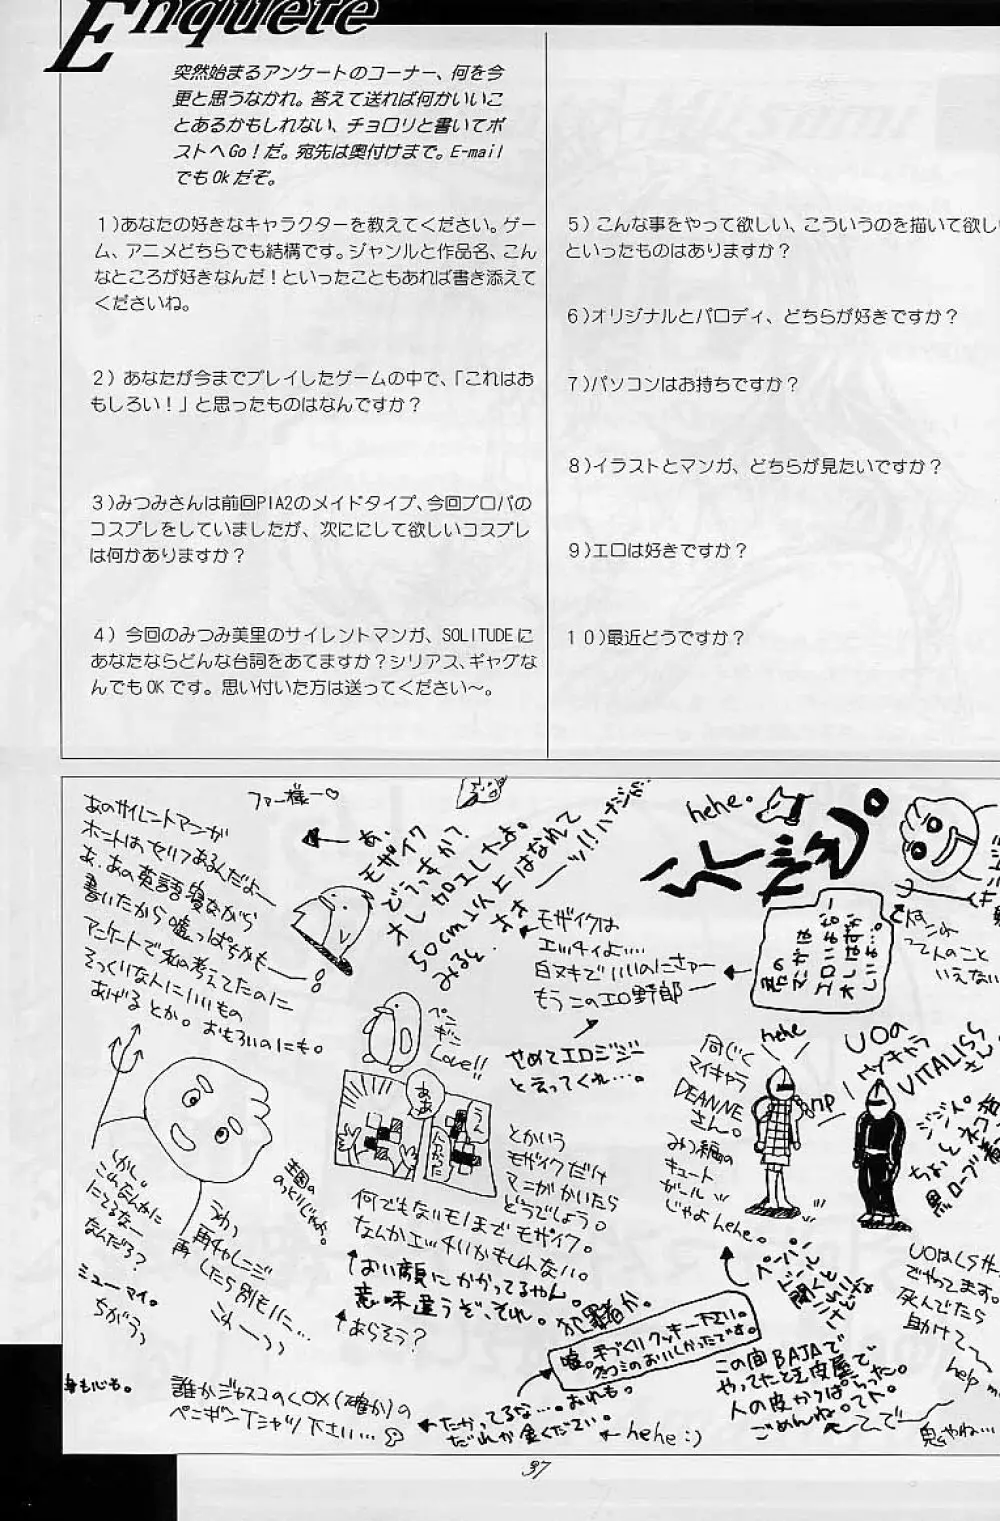 Enquete
突然始まるアンケートのコーナー、何を今
更と思うなかれ。答えて送れば何かいいこ
とあるかもしれない、チョロリと書いてポ
ストへGo!だ。宛先は奥付けまで。E-mail
でもOkだぞ。
1)あなたの好きなキャラクターを教えてください。ゲー
ム、アニメどちらでも結構です。ジャンルと作品名、こん
なところが好きなんだ!といったこともあれば書き添えて
くださいね。
2) あなたが今までプレイしたゲームの中で、「これはお
もしろい!」と思ったものはなんですか?
3)みつみさんは前回PIA2のメイドタイプ、今回プロパの
コスプレをしていましたが、次ににして欲しいコスプレ
は何かありますか?
4) 今回のみつみ美里のサイレントマンガ、SOLITUDEに
あなたならどんな台詞をあてますか?シリアス、ギャグな
んでもOKです。思い付いた方は送ってください〜。
5) こんな事をやって欲しい、こういうのを描いて欲し
といったものはありますか?
6)オリジナルとパロディ、どちらが好きですか?
7)パソコンはお持ちですか?
8)イラストとマンガ、どちらが見たいですか?
9)エロは好きですか?
10)最近どうですか?
あのサイレントマンガ
ホントは、セリフあるんだよー
あ、あの英語寝ながら
書いたから嘘っぱちかも
アンケートで私の考えてたのに
そっくりな人にいいもの
あげるとか。おもろいのにも。
ファー様ー♡
あ、
モザイク
どうっすか?
オレ加工したよ。
50cm以上はなれて
みると
hehe.
モザイクは
エッチィよ…。
白ヌキでいいのにさー
もうこのエロ野郎
やめてエロジジー
と言ってくれ…。
ペン
ギン
Love!!
ああ
とかいう
モザイクだけ
マンガかいたら
どうでしょう。
何でもないモノまでモザイク。
なんかエッチいかもしんない。
おい顔にかかってるやん。
意味違うぞ、それ。犯罪者か。
あらそう?
しかし。
これなんかに
にてるなー
なんだろ?
ミューマイ。
ちがうっ
うわっ
再チャレンジ
したら別モノに…
こわーっっ
同じく
マイキャラ
DEANNE
さん。
みつ編の
キュート
ガール
じゃよhehe。
hehe
UOの
マイキャラ
VITALISさん
黒ローブ
UOはLS
でやってます。
死んでたら
助けて〜
help me
嘘。手づくりクッキー下さい。
クチコミのおいしかったです。
この間BAJAで
やってたと毛皮屋で
人の皮かっぱらった。
ごめんね。
身も心も。
誰かジャスコのCOX(確か)の
ペンギンTシャツ下さい…
たかってるな…。おれも。
だれか金ください。
hehe:)
鬼やね…
37